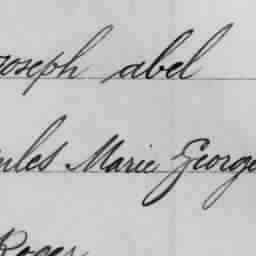 Joseph abel
Jules Marie George
Roger